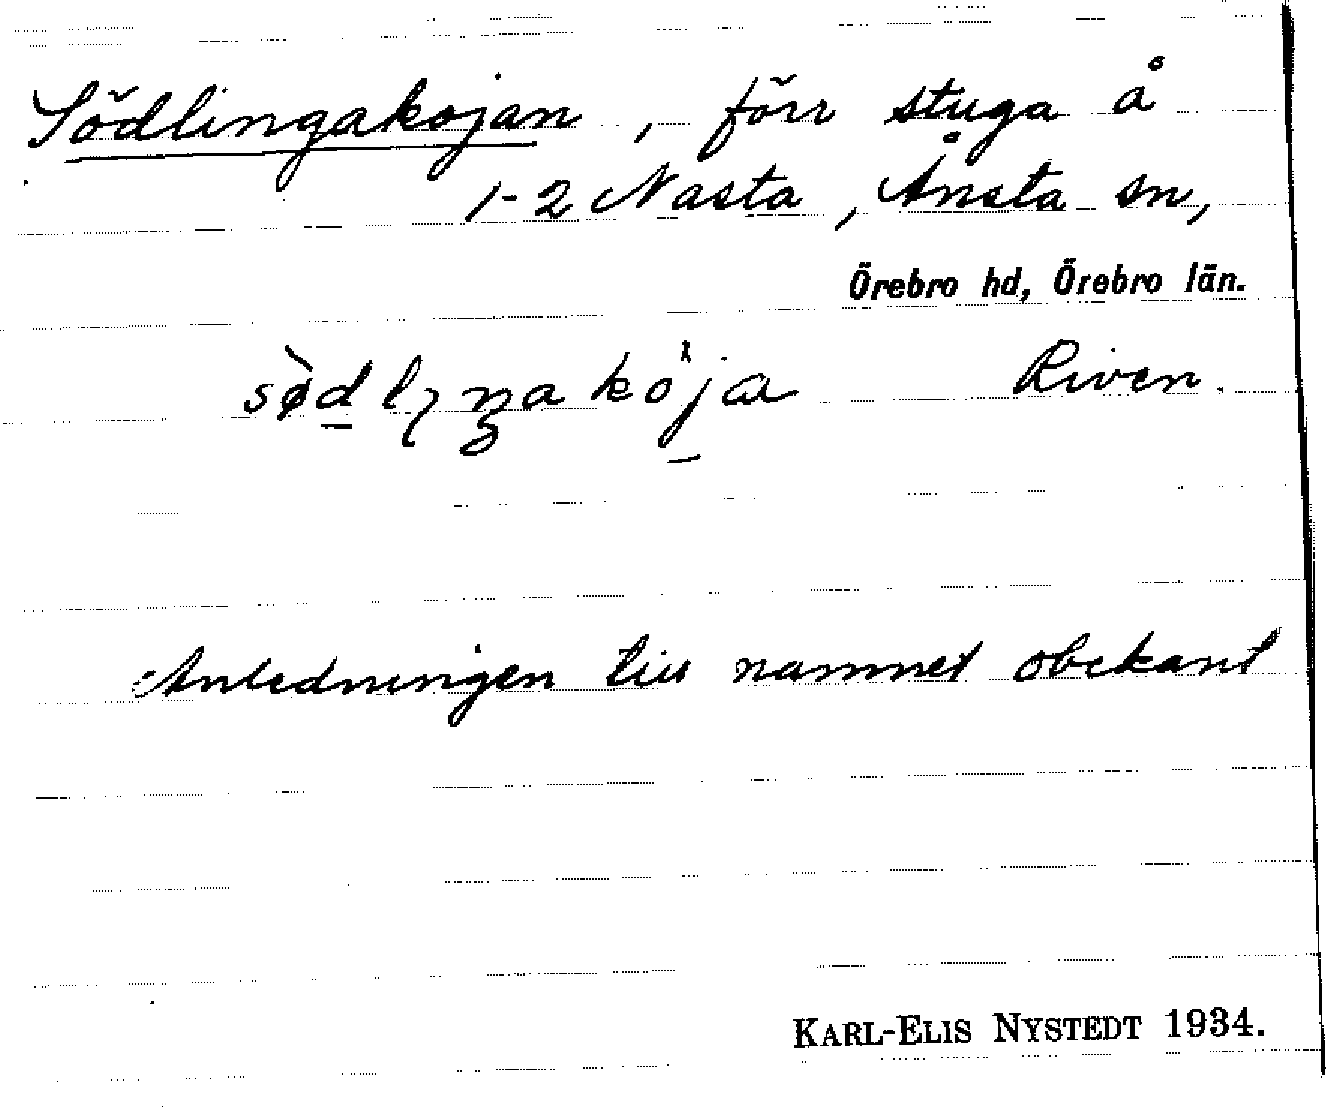 Södlingakojan, förr stuga å
1-2 Nasta, Ånsta sn,
Örebro hd, Örebro län.
sø̀dlıŋakȯja Riven.
Anledningen till namnet obekant
KARL-ELIS NYSTEDT 1934.